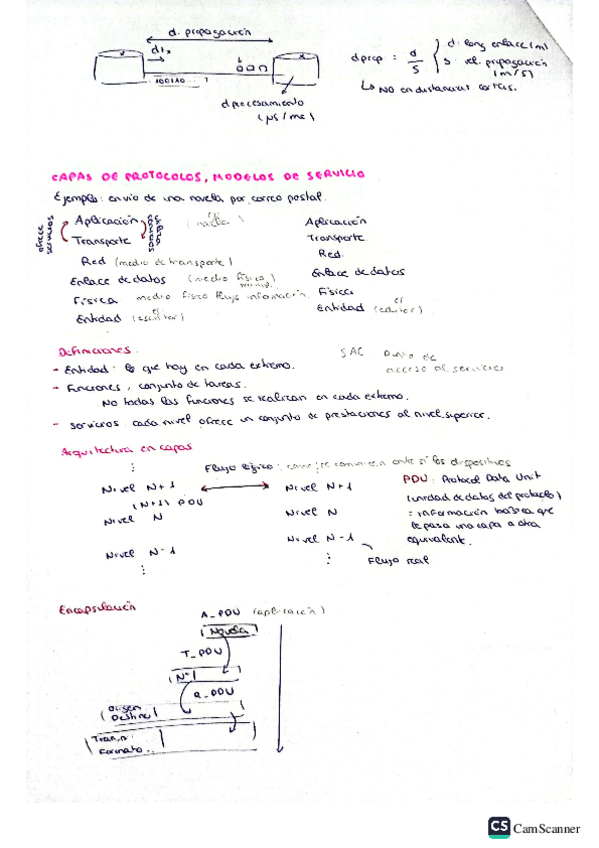 d. propagación
dtx
100110...1
d procesamiento
(μs/ms)
dprop = d/s { d: long enlace (m)
s: vel. propagación
(m/s)
↳ NO en distancias cortas.
CAPAS DE PROTOCOLOS, MODELOS DE SERVICIO
Ejemplo: envío de una novela por correo postal.
ofrece servicios
Aplicación
Aplicación
Transporte
Transporte
Red (medio de transporte)
Red
Enlace de datos (medio físico)
Enlace de datos
Física medio físico flujo información.
Física
Entidad (escritor)
Entidad (editor)
Definiciones
SAC Punto de
acceso al servicio
- Entidad: lo que hay en cada extremo.
- Funciones, conjunto de tareas.
No todas las funciones se realizan en cada extremo.
- Servicios cada nivel ofrece un conjunto de prestaciones al nivel superior.
Arquitectura en capas
Flujo lógico: como se comunican entre sí los dispositivos
Nivel N+1
Nivel N+1
(N+1) PDU
Nivel N
Nivel N
Nivel N-1
Nivel N-1
Flujo real
PDU: Protocol Data Unit
(unidad de datos del protocolo)
= información básica que
le pasa una capa a otra
equivalente.
Encapsulación
A_PDU (aplicación)
Novela
T_PDU
Nº1
R_PDU
Origen
Destino
Formato..
CS CamScanner